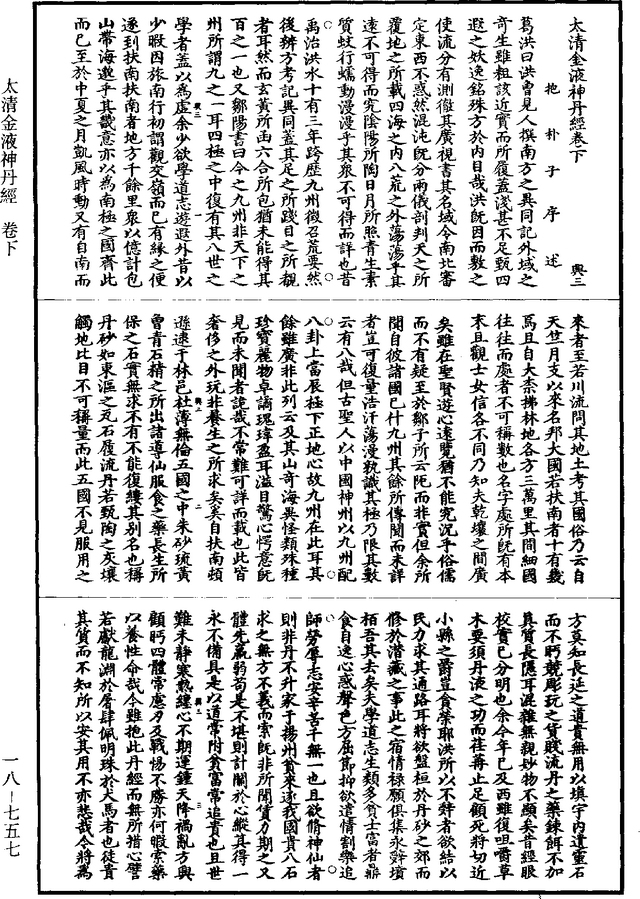 太清金液神丹經卷下 興三
抱朴子序述
葛洪曰洪曾見人撰南方之異同記外域之
奇生雖粗該近實而所覆蓋淺甚不足甄四
遐之妖逸銘殊方於內目哉洪既因而敷之
使流分有測徹其廣視書其名域令南北審
定東西不惑然混沌既分兩儀剖判天之所
覆地之所載四海之內八荒之外蕩蕩乎其
遠不可得而究陰陽所陶日月所照青生素
質蚑行蠕動漫漫乎其衆不可得而詳也昔
禹治洪水十有三年跨歷九州徵召荒要然
後辨方考記異同蓋其足之所踐目之所覩
者耳然而玄黃所函六合所包猶未能得其
百之一也又鄒陽書曰今之九州非天下之
州所謂九之一耳四極之中復有其八世之
學者蓋以為虛余少欲學道志遊遐外昔以
少暇因旅南行初謂觀交嶺而已有緣之便
遂到扶南扶南者地方千餘里衆以億計包
山帶海邈乎其畿意亦以為南極之國齊此
而已至於中夏之月凱風時動又有自南而
來者至若川流問其地土考其國俗乃云自
天竺月支以來名邦大國若扶南者十有幾
焉且自大柰拂林地各方三萬里其間細國
往往而處者不可稱數也名字處所既有本
末且觀士女信各不同乃知夫乾壤之間廣
矣雖在聖賢遊心遠覽猶不能究況乎俗儒
而不有疑至於鄒子所云阨而非實但余所
聞自彼諸國已什九州其餘所傳聞而未詳
者豈可復量浩汗蕩漫孰識其極乃限其數
云有八哉但古聖人以中國神州以九州配
八卦上當辰極下正地心故九州在此耳其
餘雖廣非此列云及其山奇海異怪類殊種
珍寶麗物卓譎瑰瑋盈耳溢目驚心愕意既
見而未聞者詭哉不常難可詳而載也此皆
奢侈之外玩非養生之所求矣矣自扶南頓
遜逮于林邑杜薄無倫五國之中朱砂琉黃
曾青石精之所出諸導仙服食之藥長生所
保之石實無求不有不能復縷其別名也稱
丹砂如東漚之瓦石履流丹若甄陶之灰壤
觸地比目不可稱量而此五國不見服用之
方莫知長延之道貴無用以填宇內遺靈石
而不眄競彫玩之貨賤流丹之藥鍊餌不加
真質長隱耳混雜無親妙物不顯矣昔經眼
校實已分明也余今年已及西雖復咀嚼草
木要須丹液之功而荏苒止足顧死將切近
小縣之爵豈貪榮耶洪所以不辭者欲結以
民力求其通路耳將欲盤桓於丹砂之郊而
修於潛藏之事此之宿情祿願俱集永辭墳
栢吾其去矣夫學道志生類多貧士富者鼎
食自逸心惑聲色方屈節抑欲遣情割樂追
師勞辱志安辛苦千無一也且欲脩神仙者
則非丹不升家于揚州貧來逐我國貴八石
求之無方不義而索既非所聞資力期之又
體先羸弱茍是不堪則計闕於心縱其得一
永不備具是以道常附貧富常追貴也且世
難未靜寒熱纏心不期運鍾天降禍亂方興
顧眄四體常慮夕及戰惕不勝亦何暇索藥
以養性命哉今雖抱此丹經而無所措心譬
若獻龍淵於屠肆佩明珠於犬馬者也徒貴
其質而不知所以安其用不亦悲哉今將為
太清金液神丹經 卷下
一八－七五七